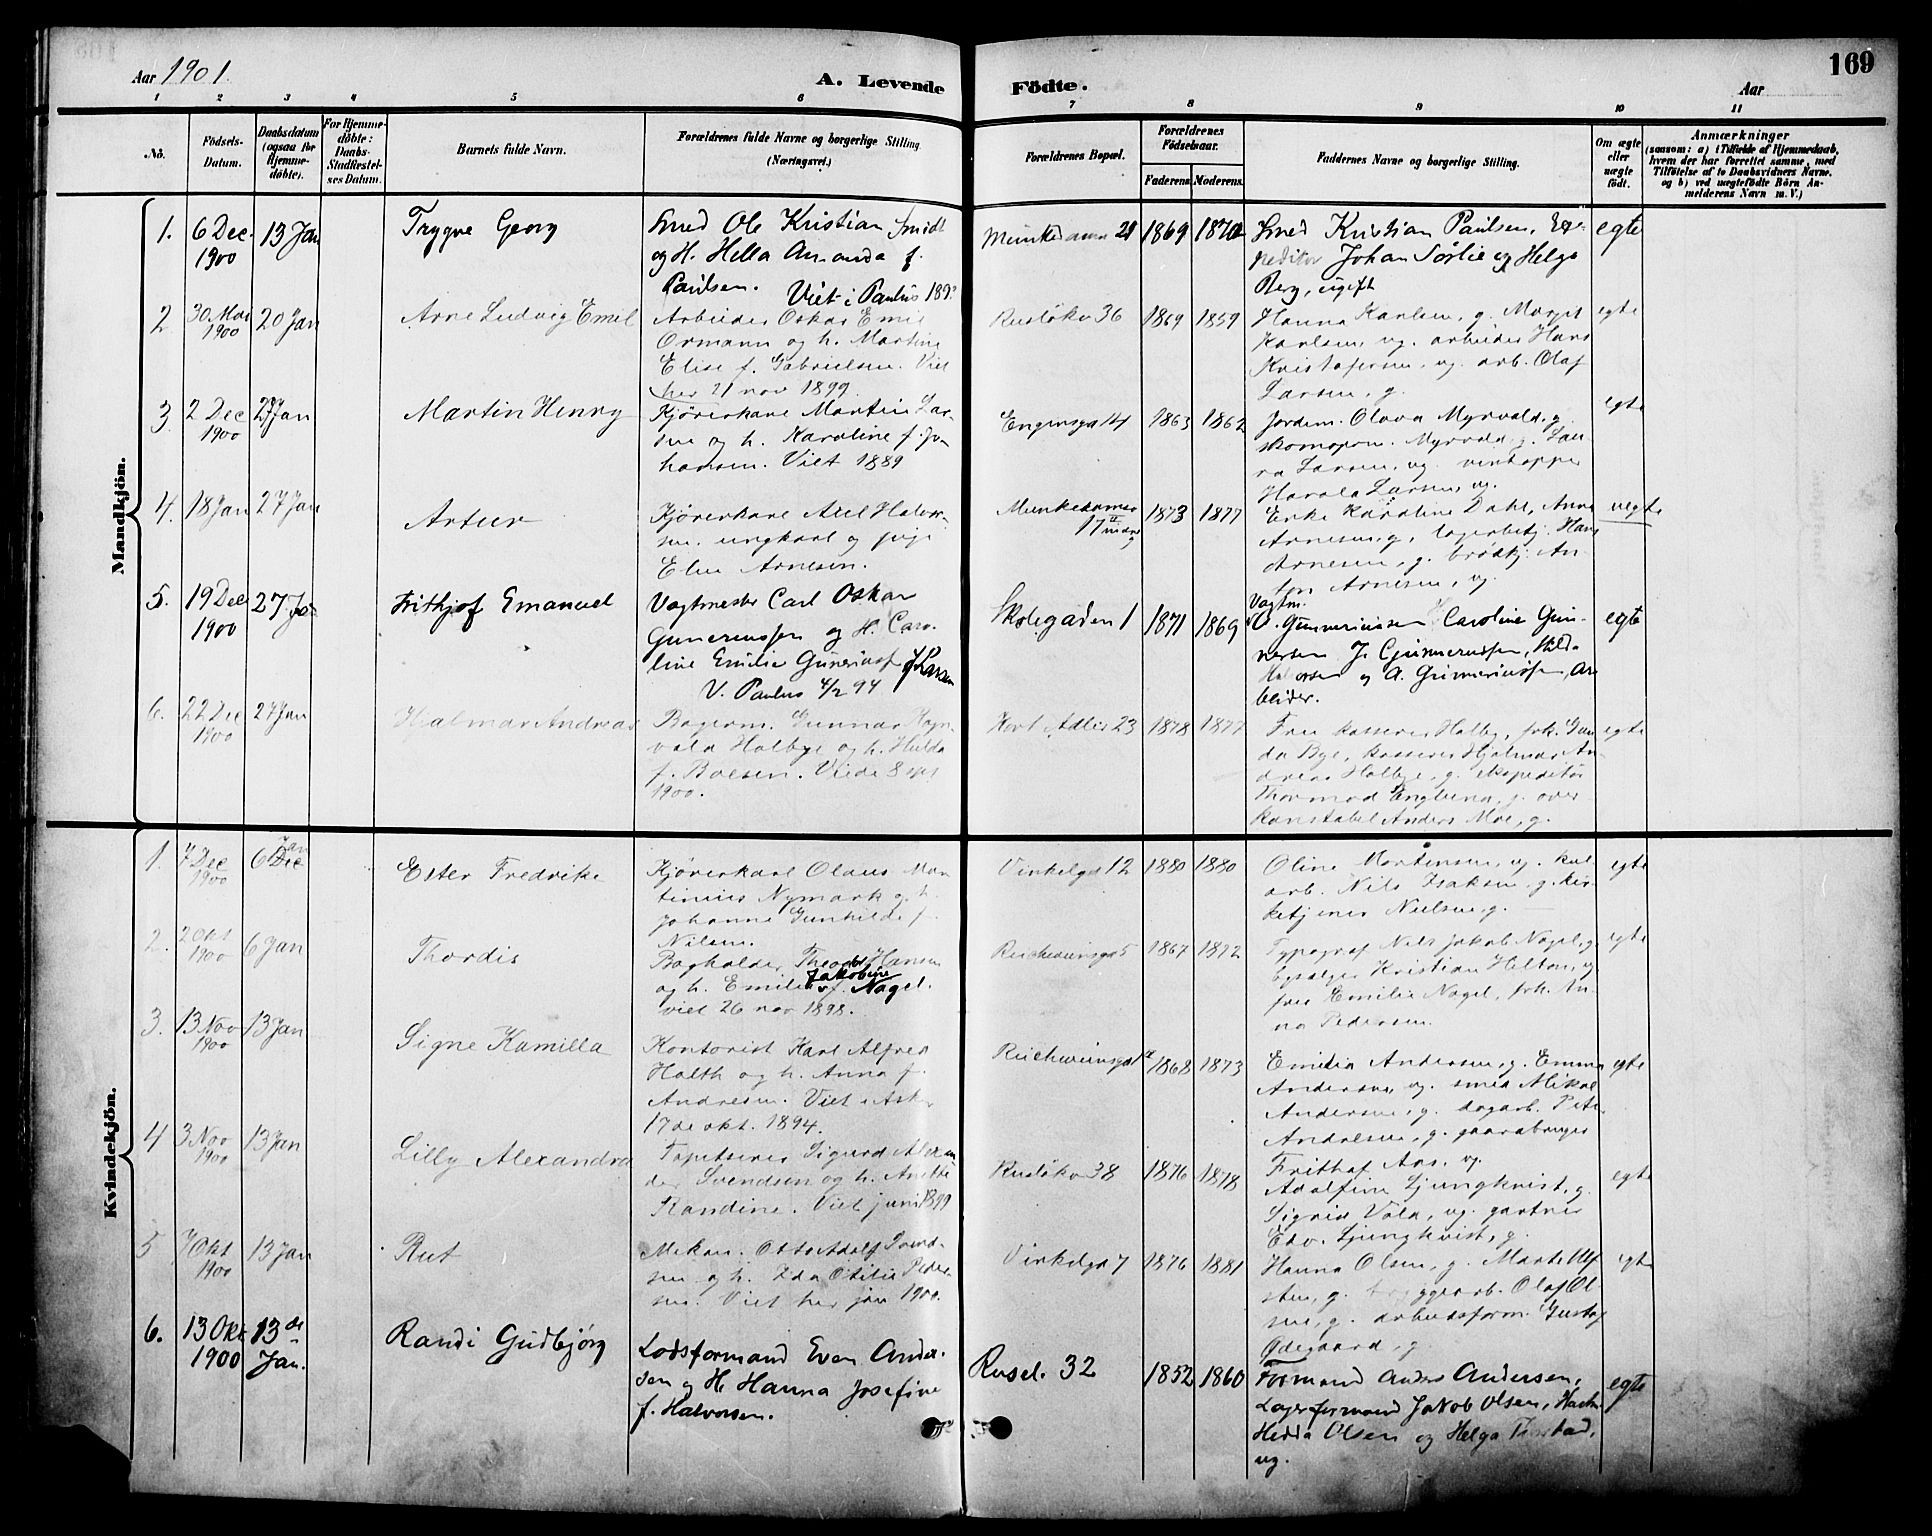 169
Aar 1901.
A. Levende Födte.
Aar
1 2 3 4 5 6 7 8 9 10 11
No.
Födsels-
Datum.
Daabsdatum
(ogsaa for
Hjemme-
döbte).
For Hjemme-
döbte:
Daabs-
Stadfæstel-
ses Datum.
Barnets fulde Navn.
Forældrenes fulde Navne og borgerlige Stilling
(Næringsvei.)
Forældrenes Bopæl.
Forældrenes
Födselsaar.
Faderens. Moderens.
Faddernes Navne og borgerlige Stilling.
Om ægte
eller
uægte
födt.
Anmærkninger
(saasom: a) i Tilfælde af Hjemmedaab,
hvem der har forrettet samme, med
Tilföielse af to Daabsvidners Navne,
og b) ved uægtefödte Börn An-
melderens Navn m. V.)
Mandkjön.
1.
6 Dec.
1900
13 Jan
Trygve Georg
Smed Ole Kristian Smidt
og H. Hella Amanda f.
Paulsen. Viet i Paulus
Munkedamm 21
1869
Smed Kristian Paulsen, Ex-
peditør Johan Sørlie og Helga
Berg, ugift
egte
2
1900
20 Jan
Arne Ludvig Emil
Arbeider Oskar Emil
Ormann og h. Martine
Elise f. Gabrielsen. Viet
her 21 nov 1899
Rusløkv 36
1869
1859
Hanna Karlsen, g. Margit
Karlsen, ug. arbeider Hans
Kristofersen, ug. arb. Olaf
Larsen, g.
egte
3.
2 Dec
1900
27 Jan
Martin Henry
Kjørerkarl Martin Lar-
sen og h. Karoline f. Jo-
hansen. Viet 1889
Engensgd 14
1863
1862
Jordm. Olava Myrvold, g.
skomagerm. Myrvold, g. Lau-
ra Larsen, ug.
Harald Larsen, ug.
egte
4.
18 Jan
27 Jan
Artur
Kjørerkarl Axel Halvor-
sen, ungkarl og pige
Elen Arnesen.
Munkedamsv
17
1873
1877
Enke Karoline Dahl, Anna
Arnesen, g. lagerbetj. Hans
Arnesen, g. brødkj. An-
ton Arnesen, ug.
uegte
5.
19 Dec
1900
27 Jan
Frithjof Emanuel
Vagtmester Carl Oskar
Gunerussen og H. Caro-
line Emilie f. Larsen
V. Paulus 4/2 94
Skolegaden 1
1871
1869
Vagtm.
O. Gunneriussen Caroline Gun-
nersen J. Gunnerussen, Hilda
Halvorsen og A. Gunneriussen, Ar-
beider.
egte
6.
22 Dec
1900
27 Jan
Hjalmar Andreas
Bagerm. Gunnar Ragn-
vald Holbye og h. Hulda
f. Boesen. Viede 8 sept
1900.
Kort Adlers 23
1878
1877
Fru kasserer Holby, frk. Gun-
da Bye, kasserer Hjalmar An-
dreas Holbye, g. ekspeditør
Thormod Englund, g. over-
konstabel Anders Moe, g.
egte
Kvindekjön.
1.
7 Dec
1900
6 Jan
Ester Fredrike
Kjørerkarl Olaus Mar-
tinius Nymark og h.
Johanne Gunhilde f.
Nilsen.
Vinkelgd 12
1880
1880
Oline Mortensen, ug. kul-
arb. Nils Isaksen, g. kir-
ketjener Nielsen, g.
egte
2.
2 Okt
1900
6 Jan
Thordis
Bogholder Theodor Hansen
og h. Emilie Jakobine f. Nagel.
viet 26 nov 1898.
Reichweinsgd 5
1867
1872
Typograf Nils Jakob Nagel, g.
Kristian Helton, ug
fru Emilie Nagel, frk. An-
na Pedersen.
egte
3.
13 Nov
1900
13 Jan
Signe Kamilla
Kontorist Karl Alfred
Holth og h. Anna f.
Andresen. Viet i Asker
17de okt. 1894.
Reichweinsgd 1
1868
1873
Emilie Andersen, g. Emma
Andersen, ug. smed Mikal
Andersen, g. dagarb. Peter
Andresen, g. gaardbruger
Frithof
egte
4
3 Nov
1900
13 Jan
Lilly Alexandra
Tapetserer Sigurd Alexan-
der Svendsen og h. Anette
Randine. Viet juni 1899
Rusløkv 38
1876
1878
Adolfine Ljungkvist, g.
Sigrid Vold, ug. gartner
Edv. Ljungkvist, g.
egte
5
7 Okt
1900
13 Jan
Rut
Mekan. Otto Adolf Svend-
sen og h. Ida Otilie Peder-
sen. Viet her jan 1900.
Vinkelgd 7
1876
1881
Hanna Olsen, g. Marte Ulf-
sten, g. bryggearb. Olaf Ol-
sen, g. arbeidsform. Gustaf
Ødegaard, g
egte
6.
13 Okt
1900
13de
Jan.
Randi Gudbjörg
Lodsformand Even Ander-
sen og H. Hanna Josefine
f. Halvorsen.
Rusel. 32
1852
1860
Formand Anders Andersen,
Lagerformand Jakob Olsen,
Hedda Olsen og Helga
ug.
egte